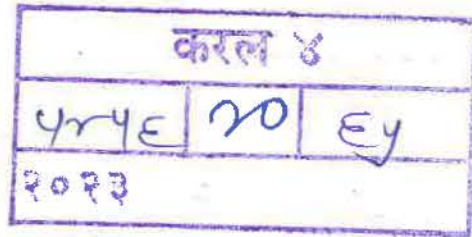 करल ४
५२५६ २० ६५
२०२३